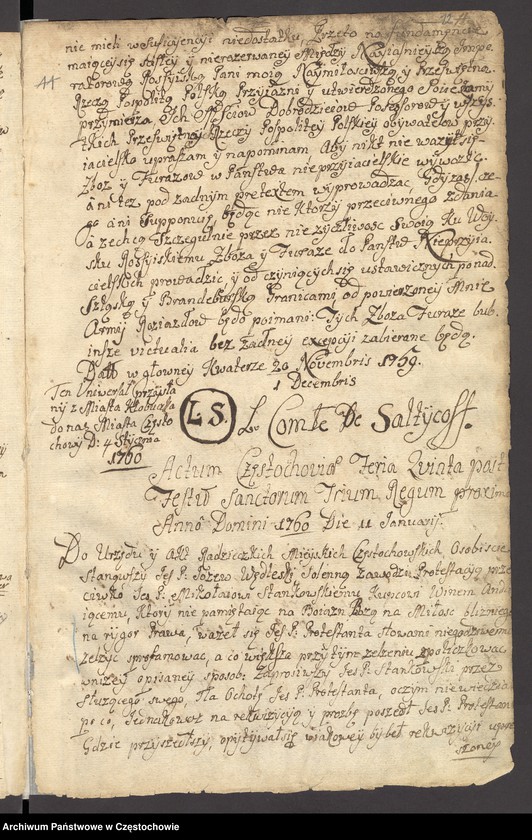 44
nie mieli w Sufficjencyi niedostatku, Przeto na fundamencie
maiącey się stałey y nierozerwaney Między Nayiaśnieyszą Impe-
ratorową Rossyiską Panią moią Naymiłościwszą y Przeswietną
Rzeczą Pospolitą Polską Przyiazni y utwierdzonego Sowieszczamy
przymierza, Ich
tkich Przeswietney Rzeczy Pospolitey Polskiey obywatelow przy-
iacielsko upraszam y napominam Aby nikt nie ważył się
Zboz y Furazow w Panstwa nieprzyiacielskie wywozic,
ani tez pod zadnym pretextem wyprowadzac, Gdyż zas cze-
go ani Supponuię, będąc nie ktorzy przeciwnego zdania
a zechcą Szczegulnie przez nie zyczliwosc Swoią Ku Woy-
sku Rossyiskiemu Zboza y Furaze do Panstw Nieprzyia-
cielskich prowadzic, y od czyniących się ustawicznych ponad
Szląską y Brandeburską Granicami, od powierzoney Mnie
Armij Roziazdow będą poimani: Tych Zboza Furaze lub
insze victualia bez zadney excepcyi zabierane będą.
Datt w głowney Kwaterze 20 Novembris 1759.
1 Decembris
Ten Uniwersał przysła
ny z Miasta Kłobucka
do nas Miasta Często
chowy D: 4 Stycznia
1760
L.S.
Le Comte De Saltycoff.
Actum Częstochoviae Feria Quinta post
Festum Sanctorum Trium Regum proxima
Anno Domini 1760 Die 11 Januarij.
Do Urzędu y Akt Radzieckich Mieyskich Częstochowskich, Osobiscie
Stanąwszy Jes P. Jozew Solenną zawodzi Protestacyą prze
ciwko Jes P. Mikołaiowi Stankowskiemu Kupcowi Winem
iącemu, Ktory nie pamiętaiąc na Boiazn Bozą na Miłosc blizniego
na rygor Prawa, wazeł się Jes P. Protestanta słowami niegodziwemi
zelzyc sprofamowac, a co większa przytym zelzeniu spoliczkowac
wnizey opisaney sposob: Zaprosiwszy Jes P. Stankowski przez
Słuzącego swego, Jes P. Protestanta, oczym niewiedząc
po co, Jednakowoz na rekwizycyą y prozbę poszedł Jes P. Protestan
Gdzie przyszedłszy, opytywał się wiakowey by był rekwizycyi
szoney
Archiwum Państwowe w Częstochowie